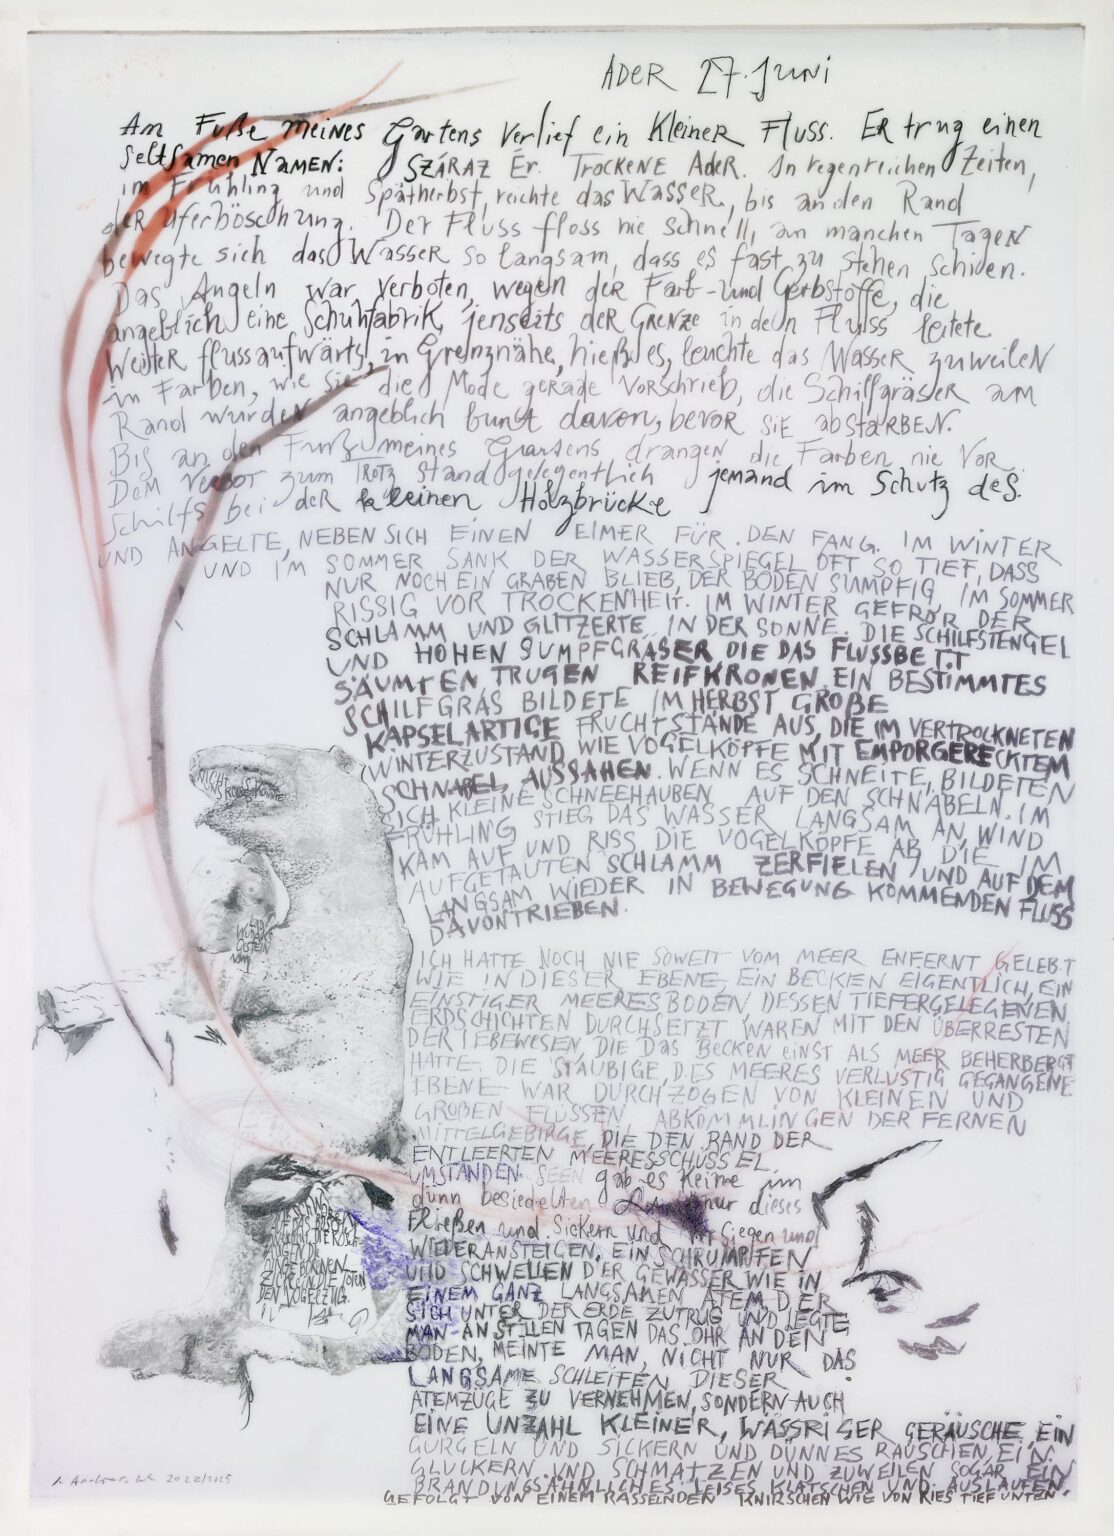 ADER 27. JUNI
Am Fuße meines Gartens verlief ein kleiner Fluss. Er trug einen
seltsamen Namen: SZÁRAZ ÉR. TROCKENE ADER. In regenreichen Zeiten,
im Frühling und Spätherbst, reichte das Wasser, bis an den Rand
der Uferböschung. Der Fluss floss nie schnell, an manchen Tagen
bewegte sich das Wasser so langsam, dass es fast zu stehen schien.
Das Angeln war verboten, wegen der Farb- und Gerbstoffe, die
angeblich eine Schuhfabrik, jenseits der Grenze in den Fluss leitete
Weiter flussaufwärts, in Grenznähe, hieß es, leuchte das Wasser zuweilen
in Farben, wie sie die Mode gerade vorschrieb, die Schilfgräser am
Rand wurden angeblich bunt davon, bevor sie abstarben.
Bis an den Fuß meines Gartens drangen die Farben nie vor.
Dem Verbot zum Trotz stand gelegentlich jemand im Schutz des
Schilfs bei der kleinen Holzbrücke
UND ANGELTE, NEBEN SICH EINEN EIMER FÜR DEN FANG. IM WINTER
UND IM SOMMER SANK DER WASSERSPIEGEL OFT SO TIEF, DASS
NUR NOCH EIN GRABEN BLIEB, DER BODEN SUMPFIG, IM SOMMER
RISSIG VOR TROCKENHEIT. IM WINTER GEFROR DER
SCHLAMM UND GLITZERTE IN DER SONNE. DIE SCHILFSTENGEL
UND HOHEN SUMPFGRÄSER DIE DAS FLUSSBETT
SÄUMTEN TRUGEN REIFKRONEN. EIN BESTIMMTES
SCHILFGRAS BILDETE IM HERBST GROßE
KAPSELARTIGE FRUCHTSTÄNDE AUS, DIE IM VERTROCKNETEN
WINTERZUSTAND WIE VOGELKÖPFE MIT EMPORGERECKTEM
SCHNABEL, AUSSAHEN. WENN ES SCHNEITE, BILDETEN
SICH KLEINE SCHNEEHAUBEN AUF DEN SCHNÄBELN. IM
FRÜHLING STIEG DAS WASSER LANGSAM AN, WIND
KAM AUF UND RISS DIE VOGELKÖPFE AB, DIE IM
AUFGETAUTEN SCHLAMM ZERFIELEN UND AUF DEM
LANGSAM WIEDER IN BEWEGUNG KOMMENDEN FLUSS
DAVONTRIEBEN.
ICH HATTE NOCH NIE SOWEIT VOM MEER ENFERNT GELEBT
WIE IN DIESER EBENE, EIN BECKEN EIGENTLICH, EIN
EINSTIGER MEERESBODEN, DESSEN TIEFERGELEGENEN
ERDSCHICHTEN DURCHSETZT WAREN MIT DEN ÜBERRESTEN
DER LEBEWESEN, DIE DAS BECKEN EINST ALS MEER BEHERBERGT
HATTE. DIE STAUBIGE, DES MEERES VERLUSTIG GEGANGENE
EBENE WAR DURCHZOGEN VON KLEINEN UND
GROßEN FLÜSSEN ABKÖMMLINGEN DER FERNEN
MITTELGEBIRGE, DIE DEN RAND DER
ENTLEERTEN MEERESSCHÜSSEL
UMSTANDEN. SEEN gab es keine im
dünn besiedelten nur dieses
Fließen und Sickern und Versiegen und
WIEDERANSTEIGEN, EIN SCHRUMPFEN
UND SCHWELLEN DER GEWÄSSER WIE IN
EINEM GANZ LANGSAMEN ATEM DER
SICH UNTER DER ERDE ZUTRUG UND LEGTE
MAN AN STILLEN TAGEN DAS OHR AN DEN
BODEN, MEINTE MAN, NICHT NUR DAS
LANGSAME SCHLEIFEN DIESER
ATEMZÜGE ZU VERNEHMEN, SONDERN AUCH
EINE UNZAHL KLEINER, WÄSSRIGER GERÄUSCHE EIN
GURGELN UND SICKERN UND DÜNNES RAUSCHEN, EIN
GLUCKERN UND SCHMATZEN UND ZUWEILEN SOGAR EIN
BRANDUNGSÄHNLICHES LEISES KLATSCHEN UND AUSLAUFEN,
GEFOLGT VON EINEM RASSELNDEN KNIRSCHEN WIE VON KIES TIEF UNTEN
DEN VOGELZUG.
2022/2025